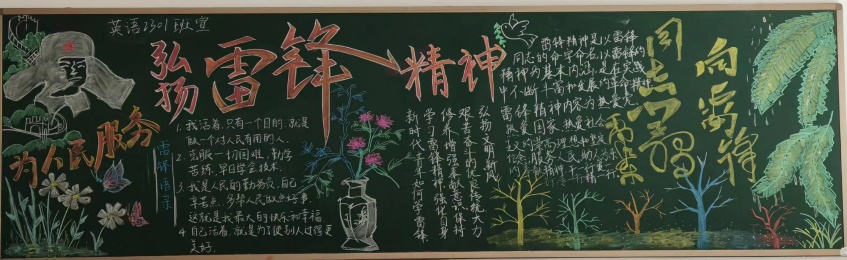 英语2301班宣
弘扬
雷锋
精神
为人民服务
雷锋语录
1. 我活着,只有一个目的,就是
做一个对人民有用的人.
2. 克服一切困难,勤学
苦练,早日学会技术.
3. 我是人民的勤务员,自己
辛苦点,多帮人民做点好事,
这就是我最大的快乐和幸福
4 自己活着,就是为了使别人过得更
美好.
弘扬文明新风
艰苦奋斗的优良传统大力
修养增强奉献意识保持
学习雷锋精神强化自身
新时代青年如何学雷锋
雷锋精神是以雷锋
同志的命字命名,以雷锋的
精神为基本内涵,在实践
中不断丰富和发展的革命精神
雷锋精神内容为热爱党、
热爱国家、热爱社会
向雷锋
同志学习